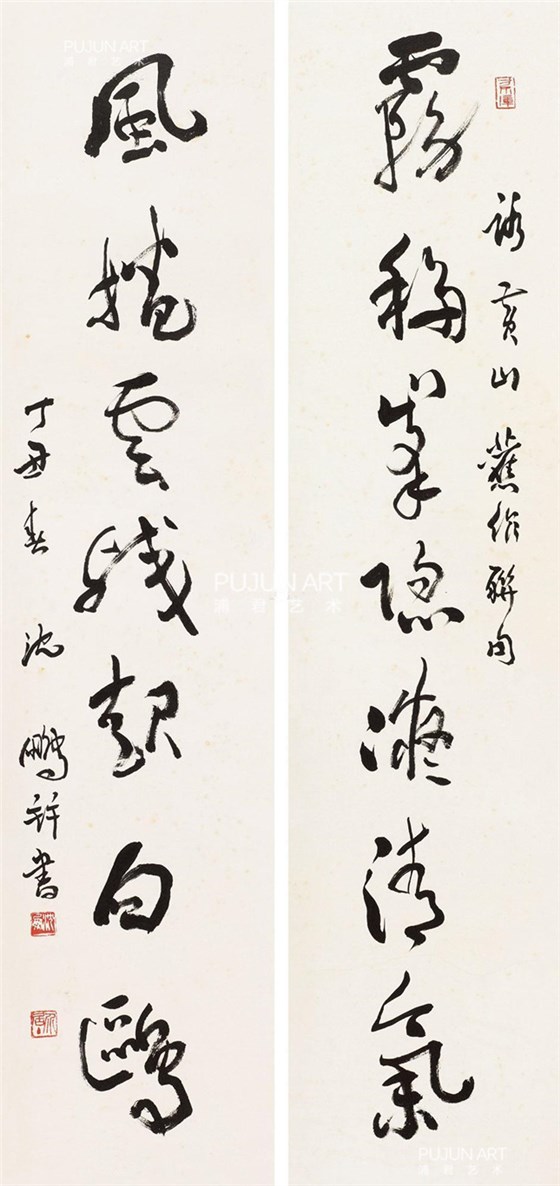 詠黄山舊作聯句
霧移峯隱凝清氣
風雲殘起白鷗
丁丑春 沈鵬并書
PUJUN ART
浦君艺术
PUJUN ART
浦君艺术
PUJUN ART
浦君艺术